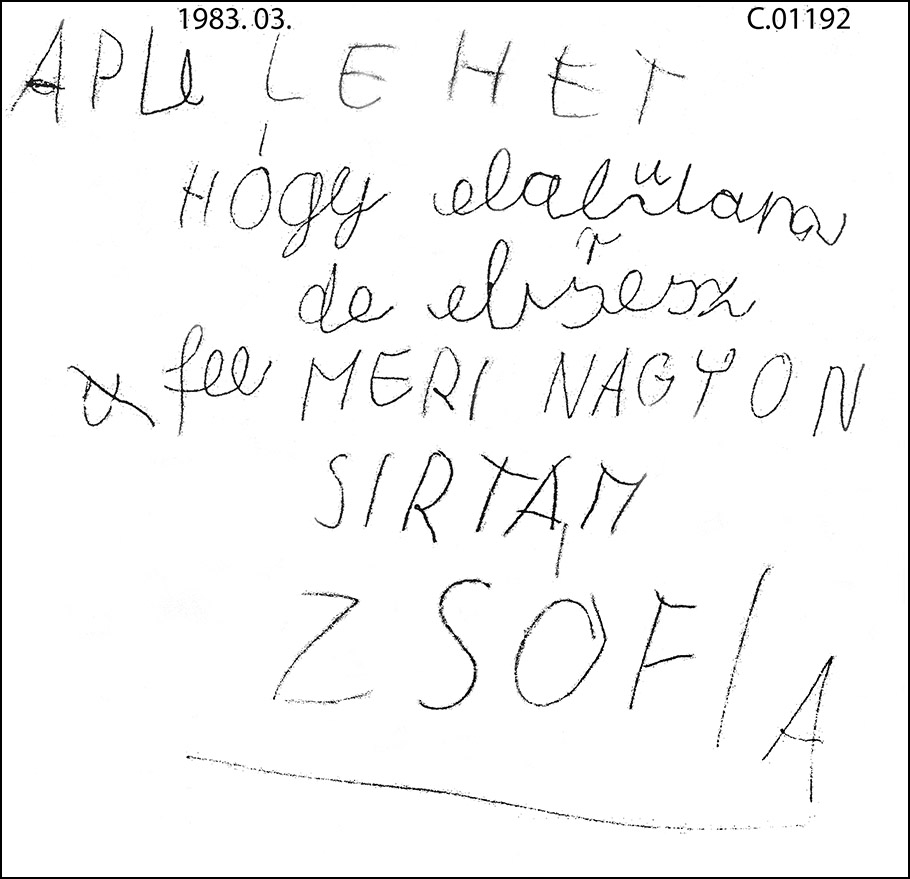 1983. 03. C.01192
APU LEHET
HÓGY elalüdlana
de elv
fel MERI NAGYON
SIRTAM
ZSÓFIA